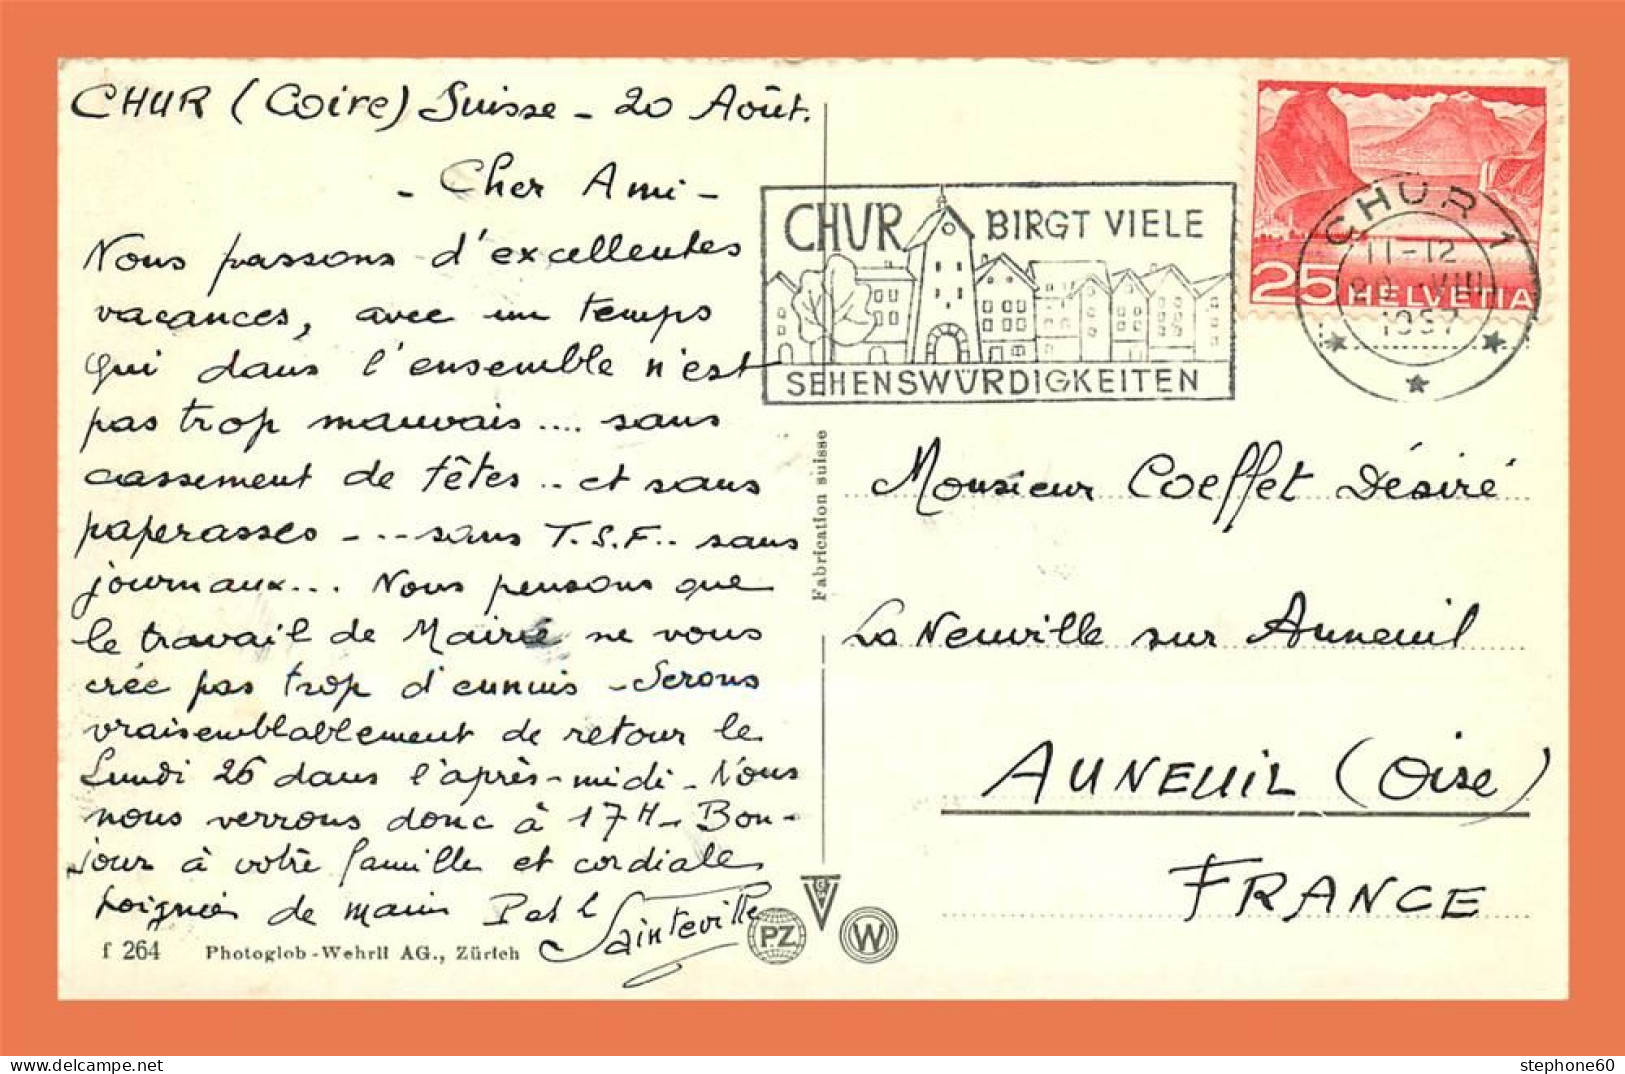 CHUR (Coire) Suisse - 20 Août.
- Cher Ami -
Nous passons d'excellentes
vacances, avec un temps
qui dans l'ensemble n'est
pas trop mauvais .... sans
cassement de têtes .. et sans
paperasses - ... sans T.S.F... sans
journaux... Nous pensons que
le travail de Mairie ne vous
crée pas trop d'ennuis - Serons
vraisemblablement de retour le
Lundi 26 dans l'après-midi - Nous
nous verrons donc à 17H - Bon-
jour à votre famille et cordiales
poignées de mains
Sainteville
f 264 Photoglob-Wehrli AG., Zürich
Fabrication suisse
PZ
W
CHUR BIRGT VIELE
SEHENSWÜRDIGKEITEN
CHUR 1
11-12
20 VIII
1957
25 HELVETIA
Monsieur Coeffet Désiré
La Neuville sur Auneuil
AUNEUIL (Oise)
FRANCE
stephone60